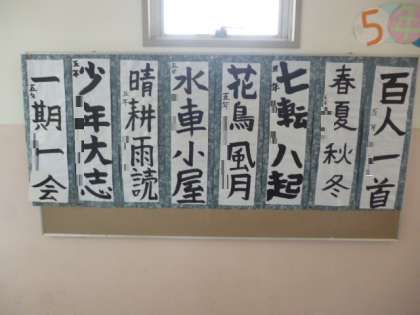 百人一首
春夏秋冬
七転八起
花鳥風月
水車小屋
晴耕雨読
少年大志
一期一会